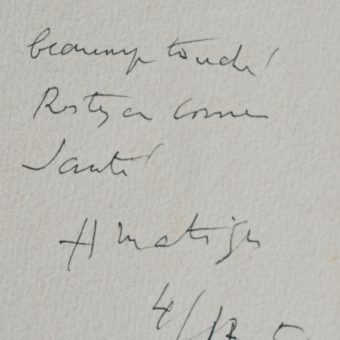 beaucoup touché!
Restez en bonne
Santé
H Matisse
4/